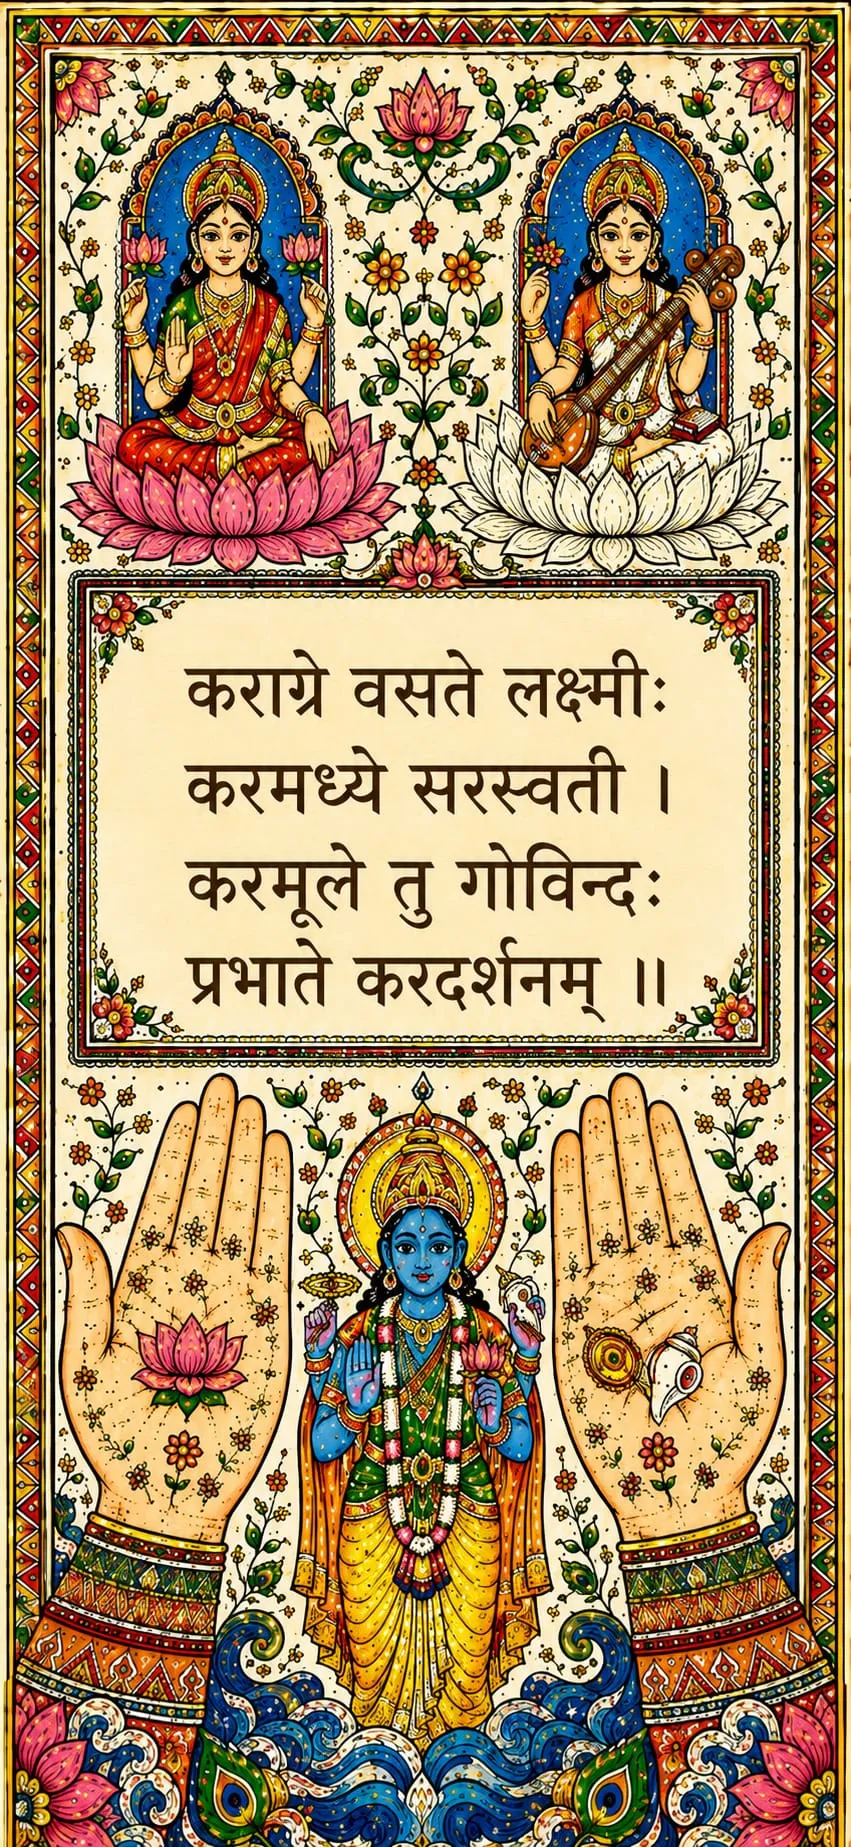 कराग्रे वसते लक्ष्मीः
करमध्ये सरस्वती ।
करमूले तु गोविन्दः
प्रभाते करदर्शनम् ॥